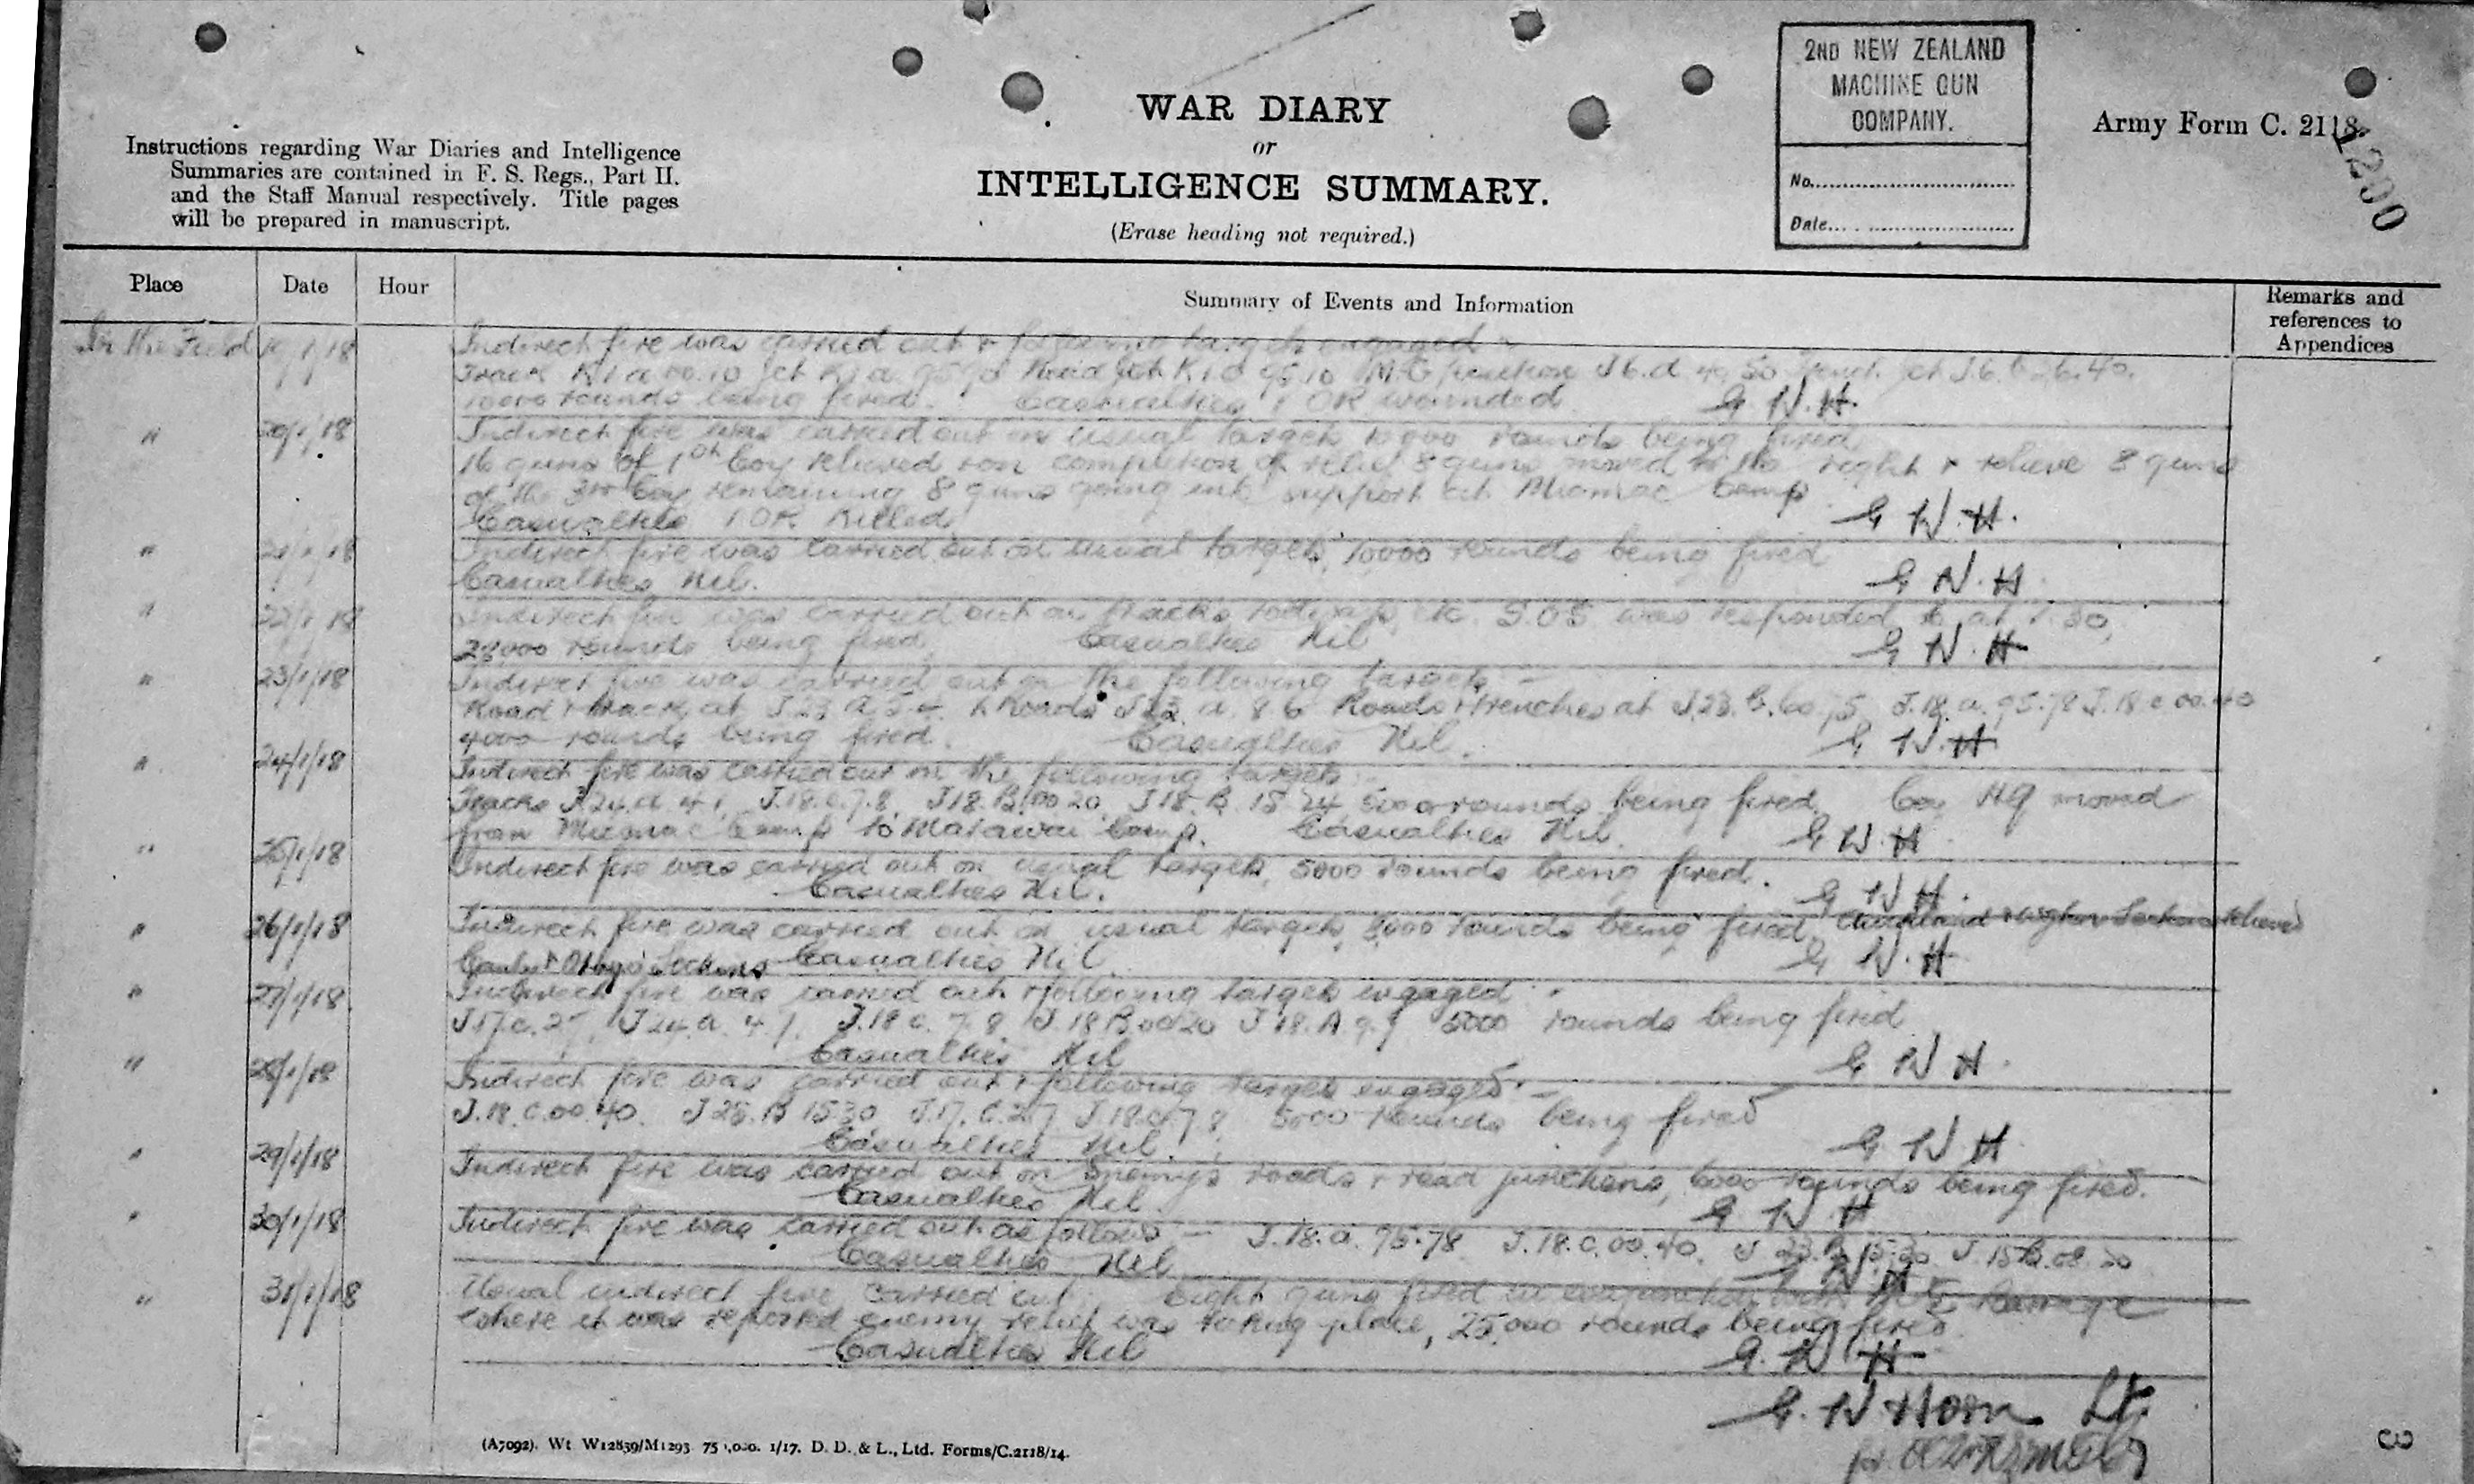 2ND NEW ZEALAND
MACHINE GUN
COMPANY.
No.
Date
WAR DIARY
or
INTELLIGENCE SUMMARY.
(Erase heading not required.)
Army Form C. 2118.
1200
Instructions regarding War Diaries and Intelligence
Summaries are contained in F. S. Regs., Part II.
and the Staff Manual respectively. Title pages
will be prepared in manuscript.
Place Date Hour Summary of Events and Information Remarks and
references to
Appendices
In the Field 19/1/18 Indirect fire was carried out & following targets engaged
Track K1a 00.10 Jct K1a Road Jct K1d 95.10 J6.d 40.50 Jct J.6.
10000 rounds being fired. Casualties 1 OR wounded G N. H.
" 20/1/18 Indirect fire was carried out on usual targets 10000 rounds being fired
16 guns of 1st Coy relieved on completion of relief 8 guns moved to the right & relieve 8 guns
of the 3rd Coy remaining 8 guns going into support at Micmac Camp
Casualties 1 OR Killed G N. H.
" 21/1/18 Indirect fire was carried out on usual targets, 10000 rounds being fired
Casualties Nil. G N. H
" 22/1/18 Indirect fire was carried out on tracks etc. S.O.S was responded to at 7.30,
28,000 rounds being fired, Casualties Nil G N. H
" 23/1/18 Indirect fire was carried out on the following targets :-
Road & track at J.23 a Roads J23. a. 8 6 Roads & trenches at J.23.b.60.75 J.18.a.95.78 J.18.c.00.40
4000 rounds being fired. Casualties Nil. G N. H
" 24/1/18 Indirect fire was carried out on the following targets :-
Tracks J.24.a.4.1, J.18.c.7.8, J18.B.00 20, J18.B.15 24 5000 rounds being fired, Coy HQ moved
from Micmac Camp to Matawai Camp. Casualties Nil. G N. H
" 25/1/18 Indirect fire was carried out on usual targets, 5000 rounds being fired.
Casualties Nil. G N H.
" 26/1/18 Indirect fire was carried out on usual targets, 8,000 rounds being fired, Auckland & Wgton Sections relieved
Canty & Otago Sections Casualties Nil. G N. H
" 27/1/18 Indirect fire was carried out & following targets engaged :-
J17.c.27, J24.a.4.1, J.18 c.7.8, J.18 B.00 20 J 18.A 9.9 5000 rounds being fired
Casualties Nil G N H.
" 28/1/18 Indirect fire was carried out & following targets engaged :-
J.18.C.00.40. J 23.B 15.30 J.17.C.27 J.18.c.7 8 5000 rounds being fired
Casualties Nil. G N H
" 29/1/18 Indirect fire was carried out on Enemy's roads & road junctions, 6000 rounds being fired.
Casualties Nil. G N H
" 30/1/18 Indirect fire was carried out as follows :- J.18.a.95.78 J.18.C.00.40. J 23.B.15.30
Casualties Nil G N H
" 31/1/18 Usual indirect fire carried out. Eight guns fired in conjunction with Barrage
where it was reported enemy relief was taking place, 25,000 rounds being fired
Casualties Nil G. N H
G. N Horn Lt.
(A7092). Wt W12839/M1293 75 ,000. 1/17. D. D. & L., Ltd. Forms/C.2118/14.
3